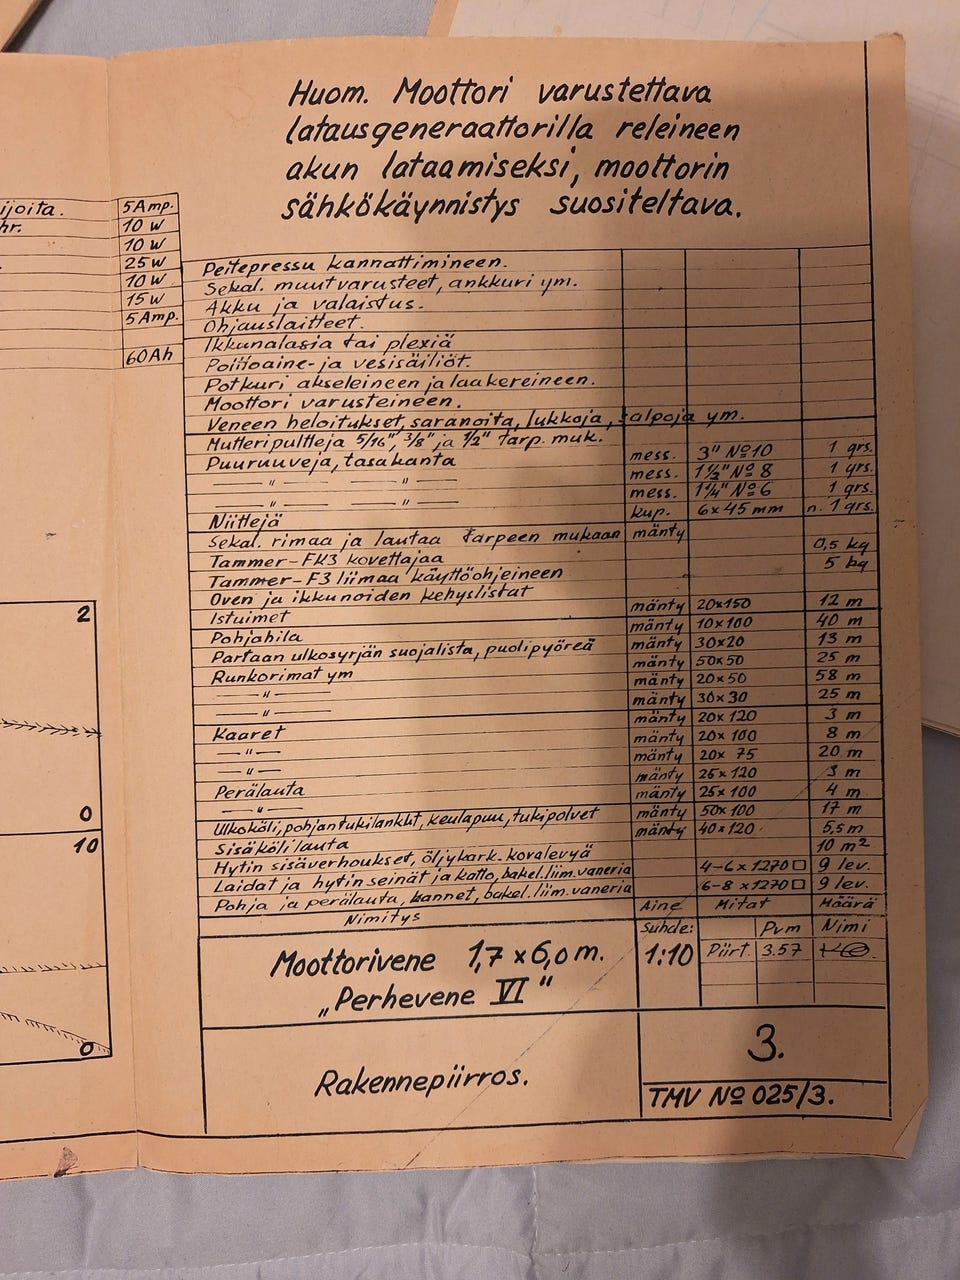 Huom. Moottori varustettava
latausgeneraattorilla releineen
akun lataamiseksi, moottorin
sähkökäynnistys suositeltava.
ijoita. 5 Amp.
hr. 10 W
10 W
25 W
10 W
15 W
5 Amp.
60 Ah
2
0
10
0
Peitepressu kannattimineen.
Sekal. muut varusteet, ankkuri ym.
Akku ja valaistus.
Ohjauslaitteet.
Ikkunalasia tai plexiä
Polttoaine- ja vesisäiliöt.
Potkuri akseleineen ja laakereineen.
Moottori varusteineen.
Veneen heloitukset, saranoita, lukkoja, salpoja ym.
Mutteripultteja 5/16", 3/8" ja 1/2" tarp. muk.
Puuruuveja, tasakanta mess. 3" № 10 1 grs.
— " — — " — mess. 1 1/2" № 8 1 grs.
— " — — " — mess. 1 1/4" № 6 1 grs.
Niittejä kup. 6 x 45 mm n. 1 grs.
Sekal. rimaa ja lautaa tarpeen mukaan mänty
Tammer-FK3 kovettajaa 0,5 kg
Tammer-F3 liimaa käyttöohjeineen 5 kg
Oven ja ikkunoiden kehyslistat
Istuimet mänty 20x150 12 m
Pohjahila mänty 10x100 40 m
Partaan ulkosyrjän suojalista, puolipyöreä mänty 30x20 13 m
Runkorimat ym mänty 50x50 25 m
— " — mänty 20x50 58 m
— " — mänty 30x30 25 m
Kaaret mänty 20x120 3 m
— " — mänty 20x100 8 m
— " — mänty 20x 75 20 m
Perälauta mänty 25x120 3 m
— " — mänty 25x100 4 m
Ulkoköli, pohjantukilankut, keulapuu, tukipolvet mänty 50x100 17 m
Sisäköli lauta mänty 40x120 5,5 m
Hytin sisäverhoukset, öljykark. kovalevyä 10 m²
Laidat ja hytin seinät ja katto, bakel. liim. vaneria 4-6 x 1270 □ 9 lev.
Pohja ja perälauta, kannet, bakel. liim. vaneria 6-8 x 1270 □ 9 lev.
Nimitys Aine Mitat Määrä
Moottorivene 1,7 x 6,0 m.
„Perhevene VI"
Suhde:
1:10
Pvm Nimi
Piirt. 3.57
Rakennepiirros.
3.
TMV № 025/3.